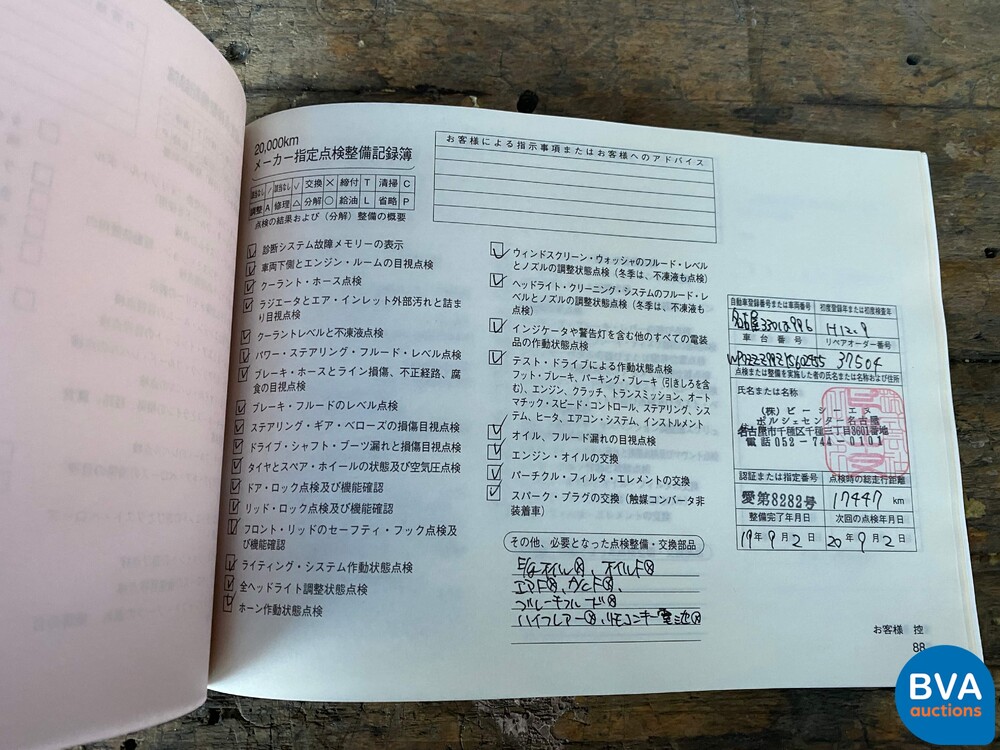 20,000km
メーカー指定点検整備記録簿
該当なし / 該当なし √ 交換 × 締付 T 清掃 C
調整 A 修理 △ 分解 ○ 給油 L 省略 P
点検の結果および（分解）整備の概要
お客様による指示事項またはお客様へのアドバイス
診断システム故障メモリーの表示
車両下側とエンジン・ルームの目視点検
クーラント・ホース点検
ラジエータとエア・インレット外部汚れと詰ま
り目視点検
クーラントレベルと不凍液点検
パワー・ステアリング・フルード・レベル点検
ブレーキ・ホースとライン損傷、不正経路、腐
食の目視点検
ブレーキ・フルードのレベル点検
ステアリング・ギア・ベローズの損傷目視点検
ドライブ・シャフト・ブーツ漏れと損傷目視点検
タイヤとスペア・ホイールの状態及び空気圧点検
ドア・ロック点検及び機能確認
リッド・ロック点検及び機能確認
フロント・リッドのセーフティ・フック点検及
び機能確認
ライティング・システム作動状態点検
全ヘッドライト調整状態点検
ホーン作動状態点検
ウィンドスクリーン・ウォッシャのフルード・レベル
とノズルの調整状態点検（冬季は、不凍液も点検）
ヘッドライト・クリーニング・システムのフルード・レ
ベルとノズルの調整状態点検（冬季は、不凍液も
点検）
インジケータや警告灯を含む他のすべての電装
品の作動状態点検
テスト・ドライブによる作動状態点検
フット・ブレーキ、パーキング・ブレーキ（引きしろを含
む）、エンジン、クラッチ、トランスミッション、オート
マチック・スピード・コントロール、ステアリング、シス
テム、ヒータ、エアコン・システム、インストルメント
オイル、フルード漏れの目視点検
エンジン・オイルの交換
パーチクル・フィルタ・エレメントの交換
スパーク・プラグの交換（触媒コンバータ非
装着車）
その他、必要となった点検整備・交換部品
E/gオイル⊗、オイルF⊗
エアF⊗、
ブレーキフルード⊗
ハイフレアー⊗、リモコンキー電池⊗
自動車登録番号または車両番号 初度登録年または初度検査年
名古屋 H12.9
車台番号 リペアオーダー番号
37504
点検または整備を実施した者の氏名または名称および住所
氏名または名称
（株）ピーシーエス
ポルシェセンター名古屋
名古屋市千種区千種三丁目3601番地
電話052-744-0101
認証または指定番号 点検時の総走行距離
愛第8282号 17447 km
整備完了年月日 次回の点検年月日
19年9月2日 20年9月2日
お客様 控
88
BVA
auctions